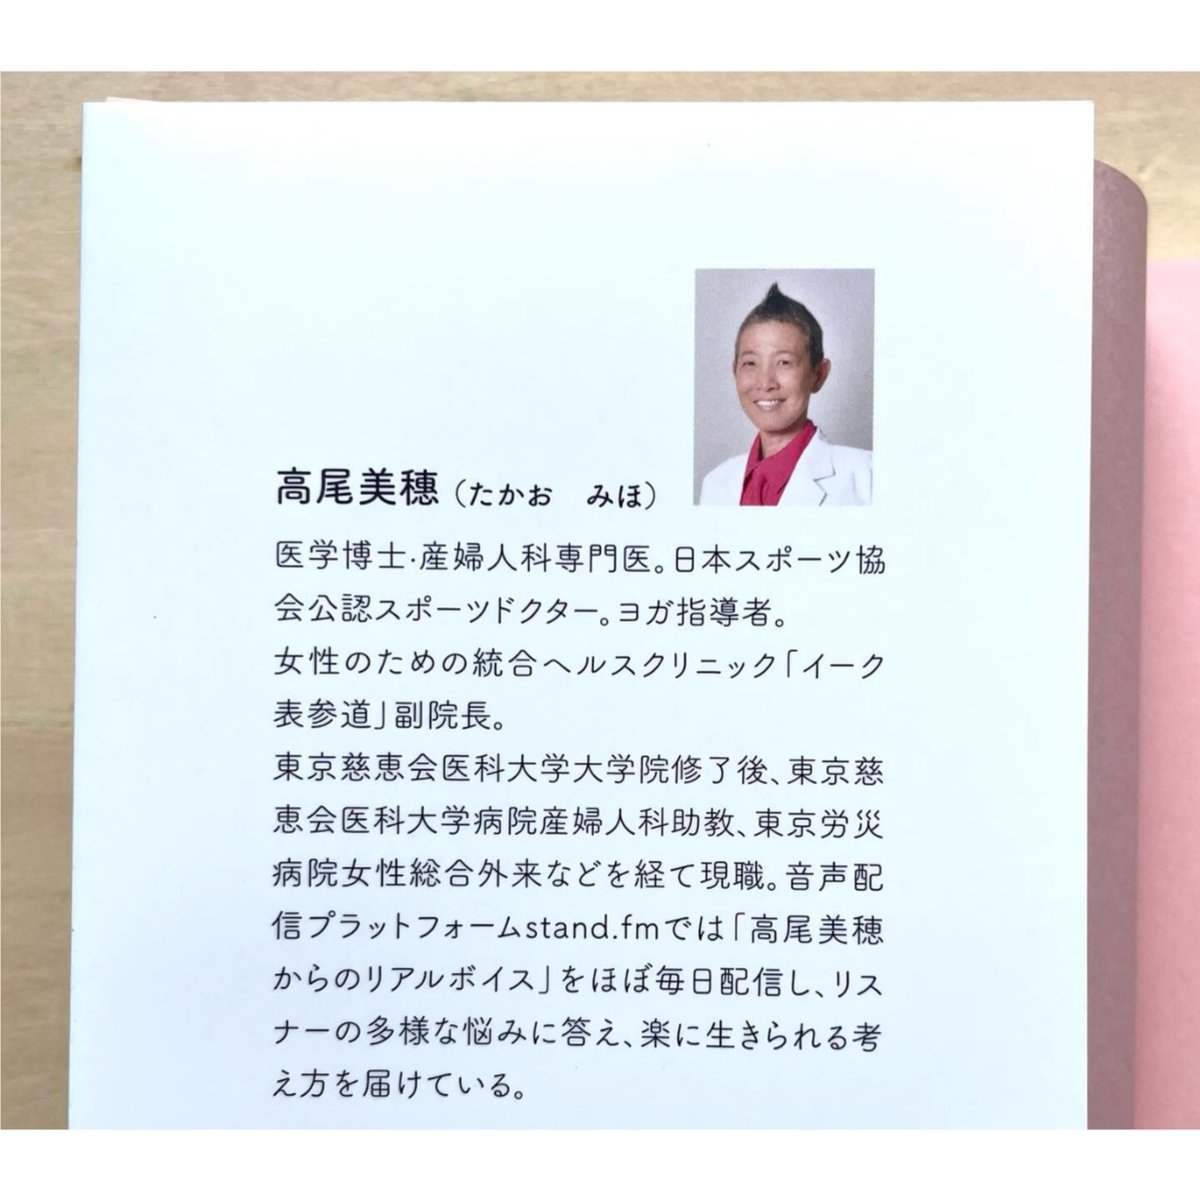 高尾美穂（たかお　みほ）
医学博士・産婦人科専門医。日本スポーツ協
会公認スポーツドクター。ヨガ指導者。
女性のための統合ヘルスクリニック「イーク
表参道」副院長。
東京慈恵会医科大学大学院修了後、東京慈
恵会医科大学病院産婦人科助教、東京労災
病院女性総合外来などを経て現職。音声配
信プラットフォームstand.fmでは「高尾美穂
からのリアルボイス」をほぼ毎日配信し、リス
ナーの多様な悩みに答え、楽に生きられる考
え方を届けている。